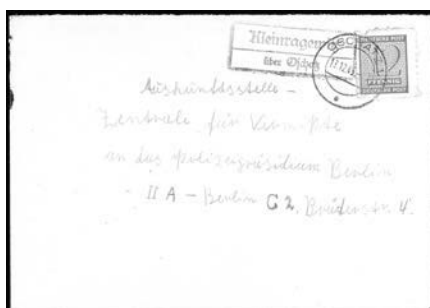 Kleinragewitz
über Oschatz
OSCHATZ
12
PFENNIG
DEUTSCHE POST
Auskunftsstelle -
Zentrale für Vermißte
an das Polizeipräsidium Berlin
II A - Berlin C 2, Brüderstr. 4.